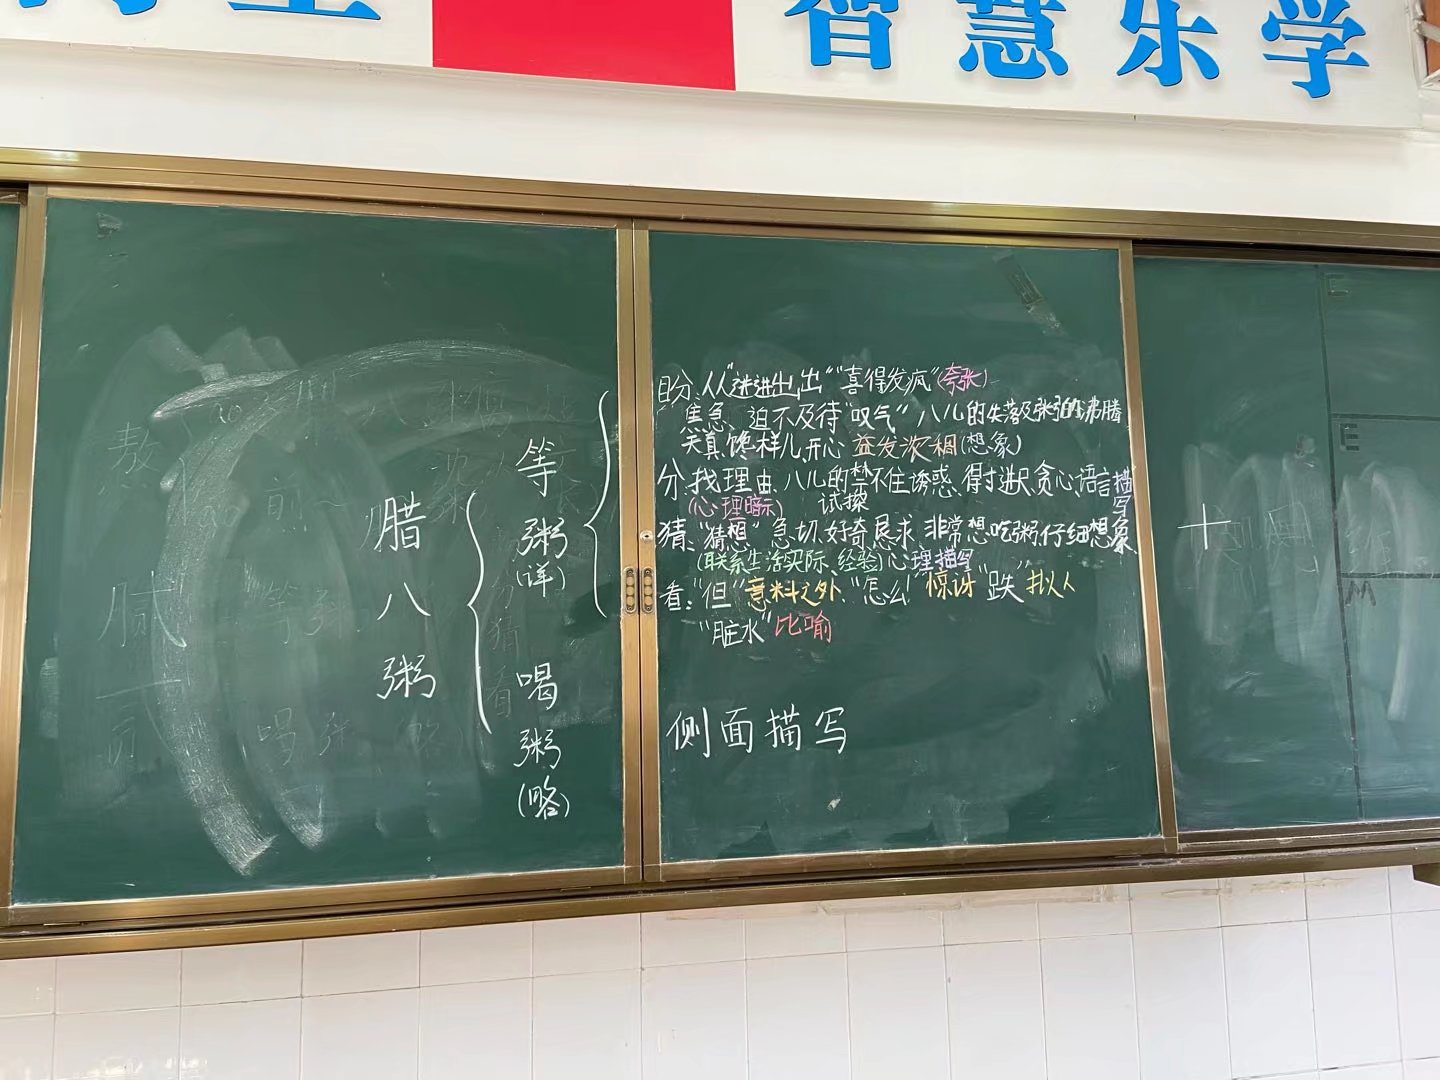 智慧乐学
腊八粥
等粥
(详)
喝粥
(略)
盼:人"进进出出""喜得发疯"(夸张)
焦急、迫不及待"叹气"八儿的失落及粥的沸腾
天真,馋样儿,开心 益发浓稠(想象)
分:找理由,八儿的禁不住诱惑,得寸进尺,贪心,语言描写
(心理暗示)
试探
猜:"猜想"急切,好奇恳求,非常想吃粥,仔细想象
(联系生活实际、经验)心理描写
看:"但"意料之外,"怎么!"惊讶"跌"拟人
"脏水"比喻
侧面描写
十
E
E
M